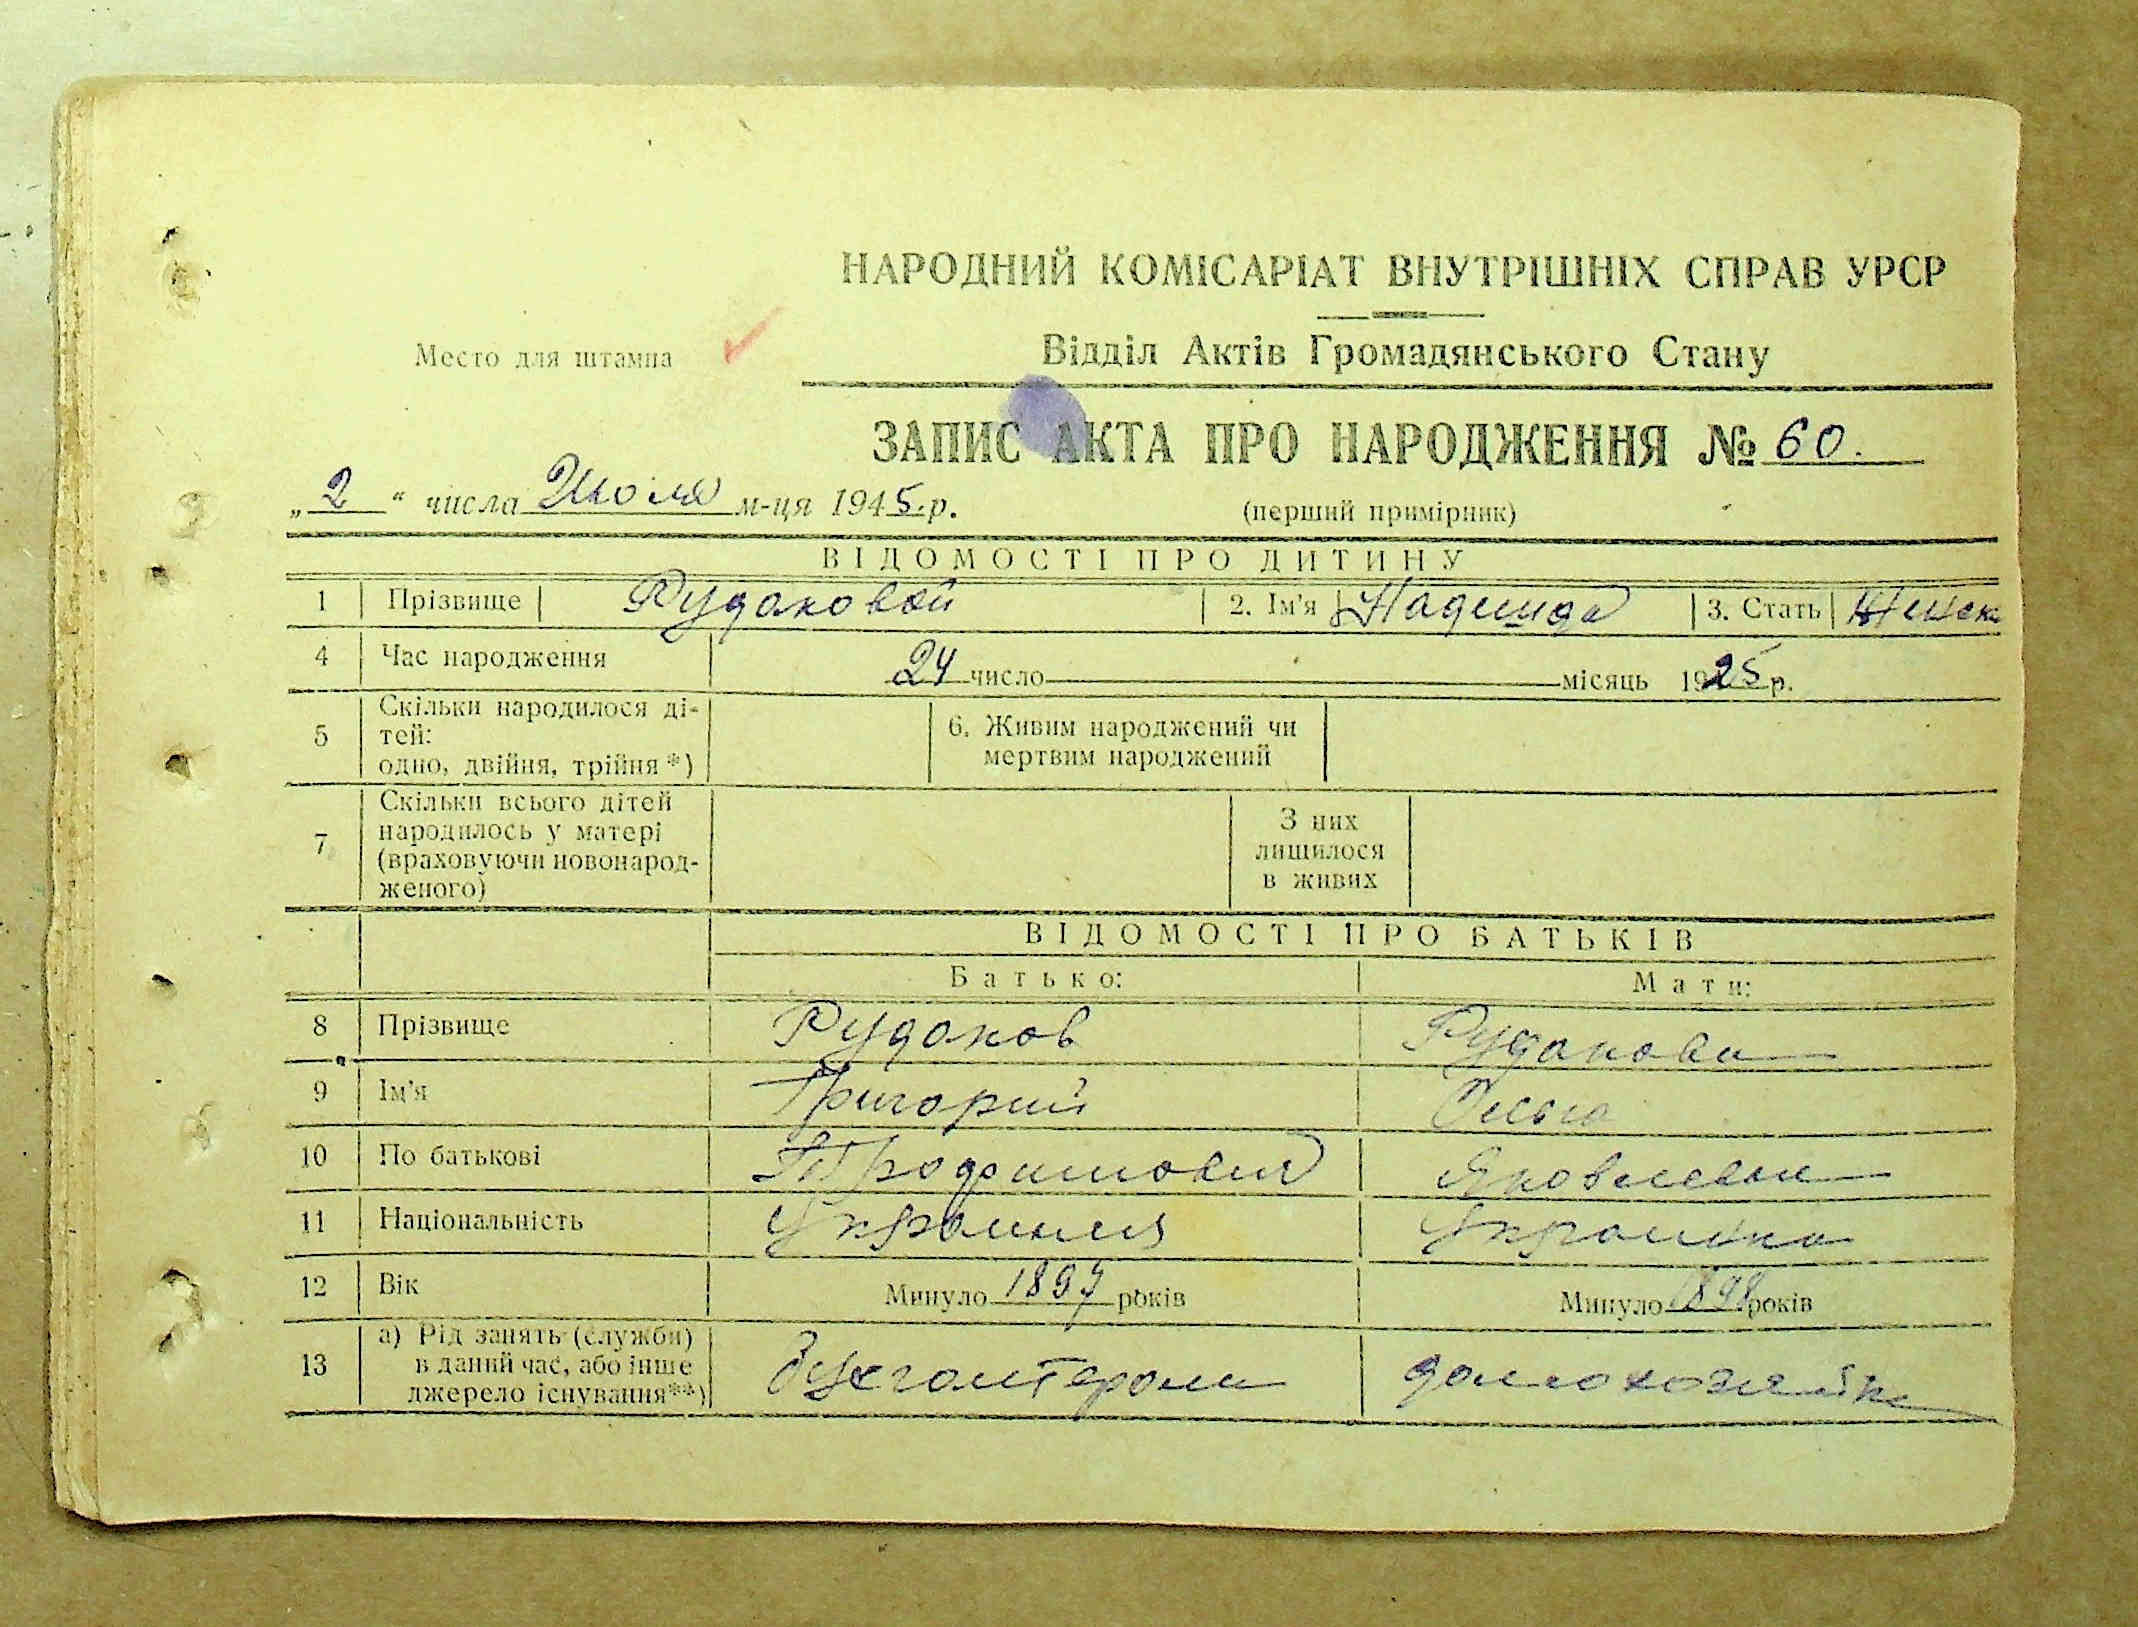 НАРОДНИЙ КОМІСАРІАТ ВНУТРІШНІХ СПРАВ УРСР
Место для штампа
Відділ Актів Громадянського Стану
ЗАПИС АКТА ПРО НАРОДЖЕННЯ № 60.
„2“ числа Июля м-ця 1945 р.
(перший примірник)
ВІДОМОСТІ ПРО ДИТИНУ
1 Прізвище Рудаковой 2. Ім'я Надежда 3. Стать Женск
4 Час народження 24 число місяць 1925 р.
5 Скільки народилося ді-
тей:
одно, двійня, трійня*)
6. Живим народжений чи
мертвим народжений
7 Скільки всього дітей
народилось у матері
(враховуючи новонарод-
женого)
З них
лишилося
в живих
ВІДОМОСТІ ПРО БАТЬКІВ
Батько: Мати:
8 Прізвище Рудаков Рудакова
9 Ім'я Григорий Ольга
10 По батькові Трофимович Яковлевна
11 Національність Украинец Украинка
12 Вік Минуло 1897 років Минуло 1898 років
13 а) Рід занять (служби)
в даний час, або інше
джерело існування**)
бухгалтером домохозяйка